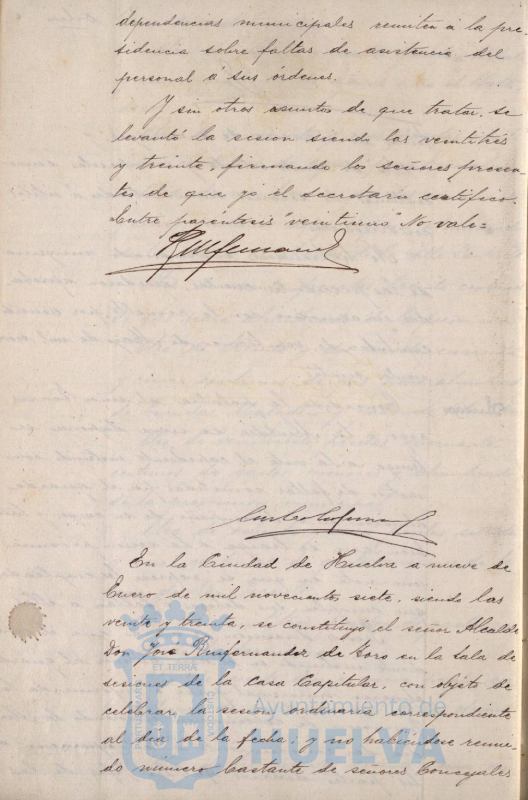 dependencias municipales remiten á la pre-
sidencia sobre faltas de asistencia del
personal á sus órdenes.
Y sin otros asuntos de que tratar, se
levantó la sesion siendo las veintitrés
y treinta, firmando los señores presen-
tes de que yo el secretario certifico.
Entre paréntesis "veintinueve" No vale=
En la Ciudad de Huelva a nueve de
Enero de mil novecientos siete, siendo las
veinte y treinta, se constituyó el señor Alcalde
Don José Ruifernandez de Toro en la Sala de
sesiones de la casa Capitular, con objeto de
celebrar la sesion ordinaria correspondiente
al dia de la fecha, y no habiéndose reuni-
do número bastante de señores Concejales
ET TERRÆ
Ayuntamiento de
HUELVA